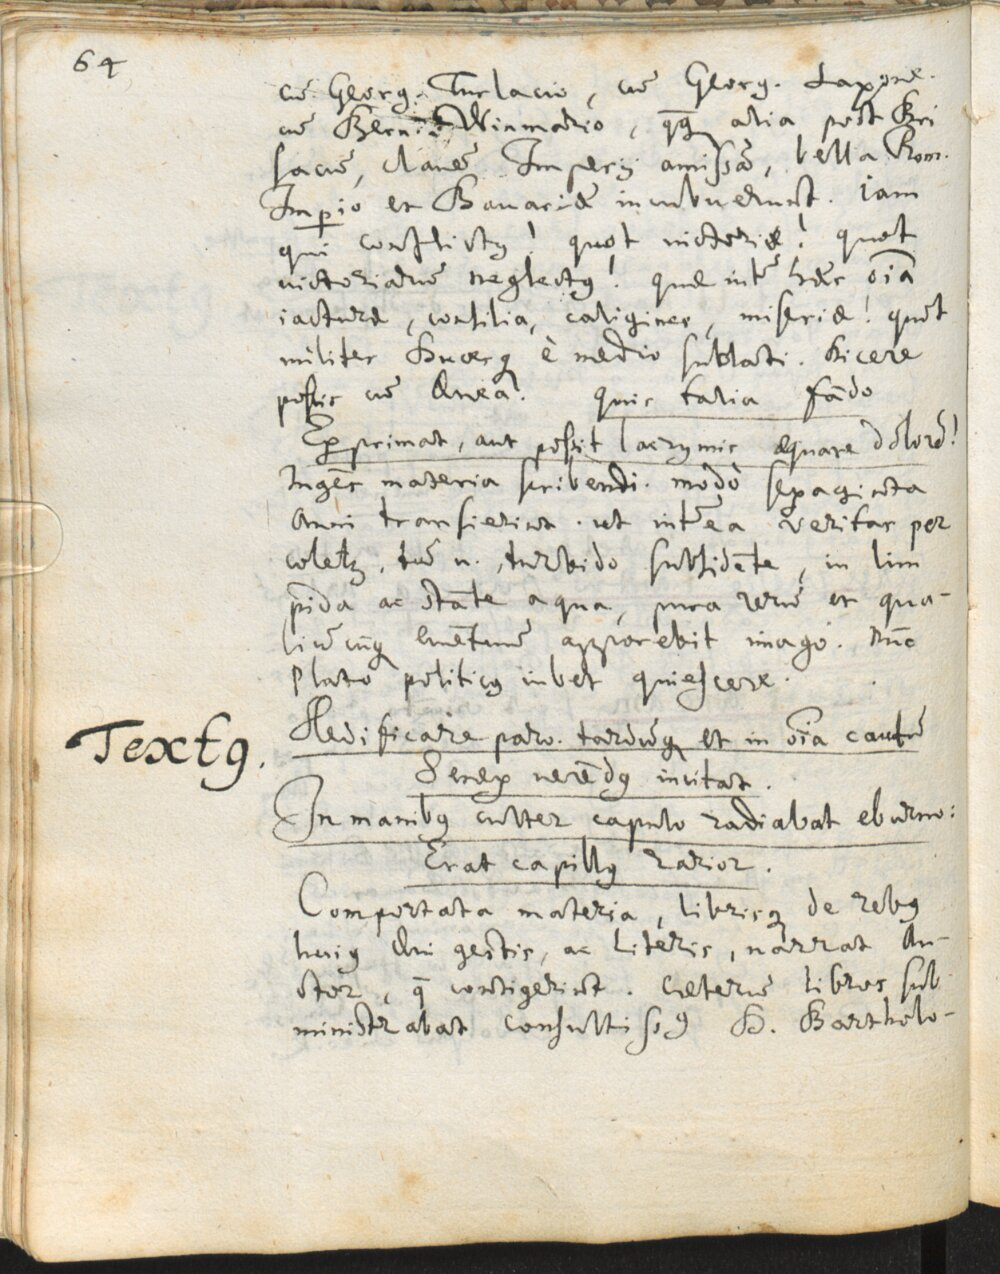 64
cū Georg. Turlacio, cū Georg. Saxone.
cū Bern: Winmario, qꝫ alia post Bri
sacū, clauē Imperij amissā, bella Rom.
Imp̱io et Bauariæ incubuerunt. Iam
qui conflictꝰ! quot uictoriæ! quot
uictoriarū neglectꝰ! quæ intē hæc oīa
iacturæ, consilia, caligines, miseriæ! quot
milites Ducesqꝫ è medio sublati. Dicere
possis cū Ænea. quis talia fādo
Exprimat, aut possit lacrymis æquare dolorē!
Ingēs materia scribendi. modò sexaginta
Anni transierint. ut intērea veritas per
coletꝰ, tū n. turbido subsidēte, in lim
pida ac stāte aqua, pura rerū et qua-
liūcūqꝫ euētuū apparebit imago. Nūc
Plato politicꝰ iubet quiescere.
Textꝰ.
Aedificare paro. tardūqꝫ et in oīa cautū
Senex uerēdꝰ incitat.
In manibꝰ culter capulo radiabat eburno:
Erat capillꝰ rarior.
Comportata materia, librisqꝫ de rebꝰ
huiꝰ Æui gestis, ac literis, narrat Au-
ctor, q̄ contigerint. Cæterū libros sub
ministrabat consultissꝰ D. Bartholo-